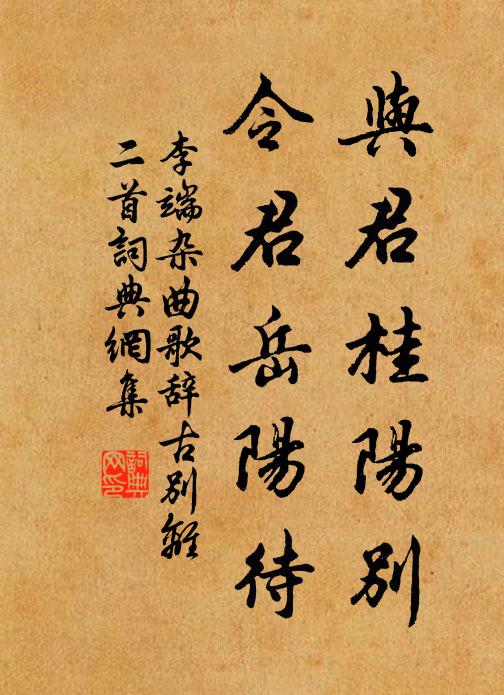 與君桂陽別
令君岳陽待
李端杂曲歌辞古別離
二首詞典網集
詞典網印